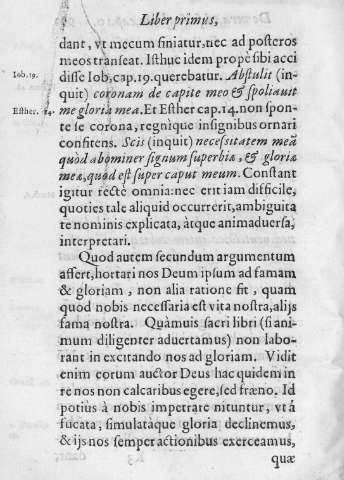 Liber primus,
dant, vt mecum finiatur, nec ad posteros
meos transeat. Isthuc idem propè sibi acci
Iob. 19. disse Iob, cap. 19. querebatur. Abstulit (in-
quit) coronam de capite meo & spoliauit
Esther. 14. me gloria mea. Et Esther cap. 14. non spon-
te se corona, regnique insignibus ornari
confitens. Scis (inquit) necessitatem meã
quòd abominer signum superbiæ, & gloriæ
meæ, quod est super caput meum. Constant
igitur rectè omnia: nec erit iam difficile,
quoties tale aliquid occurrerit, ambiguita
te nominis explicata, àtque animaduersa,
interpretari.
Quod autem secundum argumentum
affert, hortari nos Deum ipsum ad famam
& gloriam, non alia ratione fit, quam
quod nobis necessaria est vita nostra, alijs
fama nostra. Quàmuis sacri libri (si ani-
mum diligenter aduertamus) non labo-
rant in excitando nos ad gloriam. Vidit
enim eorum auctor Deus hac quidem in
re nos non calcaribus egere, sed fræno. Id
potiùs à nobis impetrare nituntur, vt à
fucata, simulatàque gloria declinemus,
& ijs nos semper actionibus exerceamus,
quæ